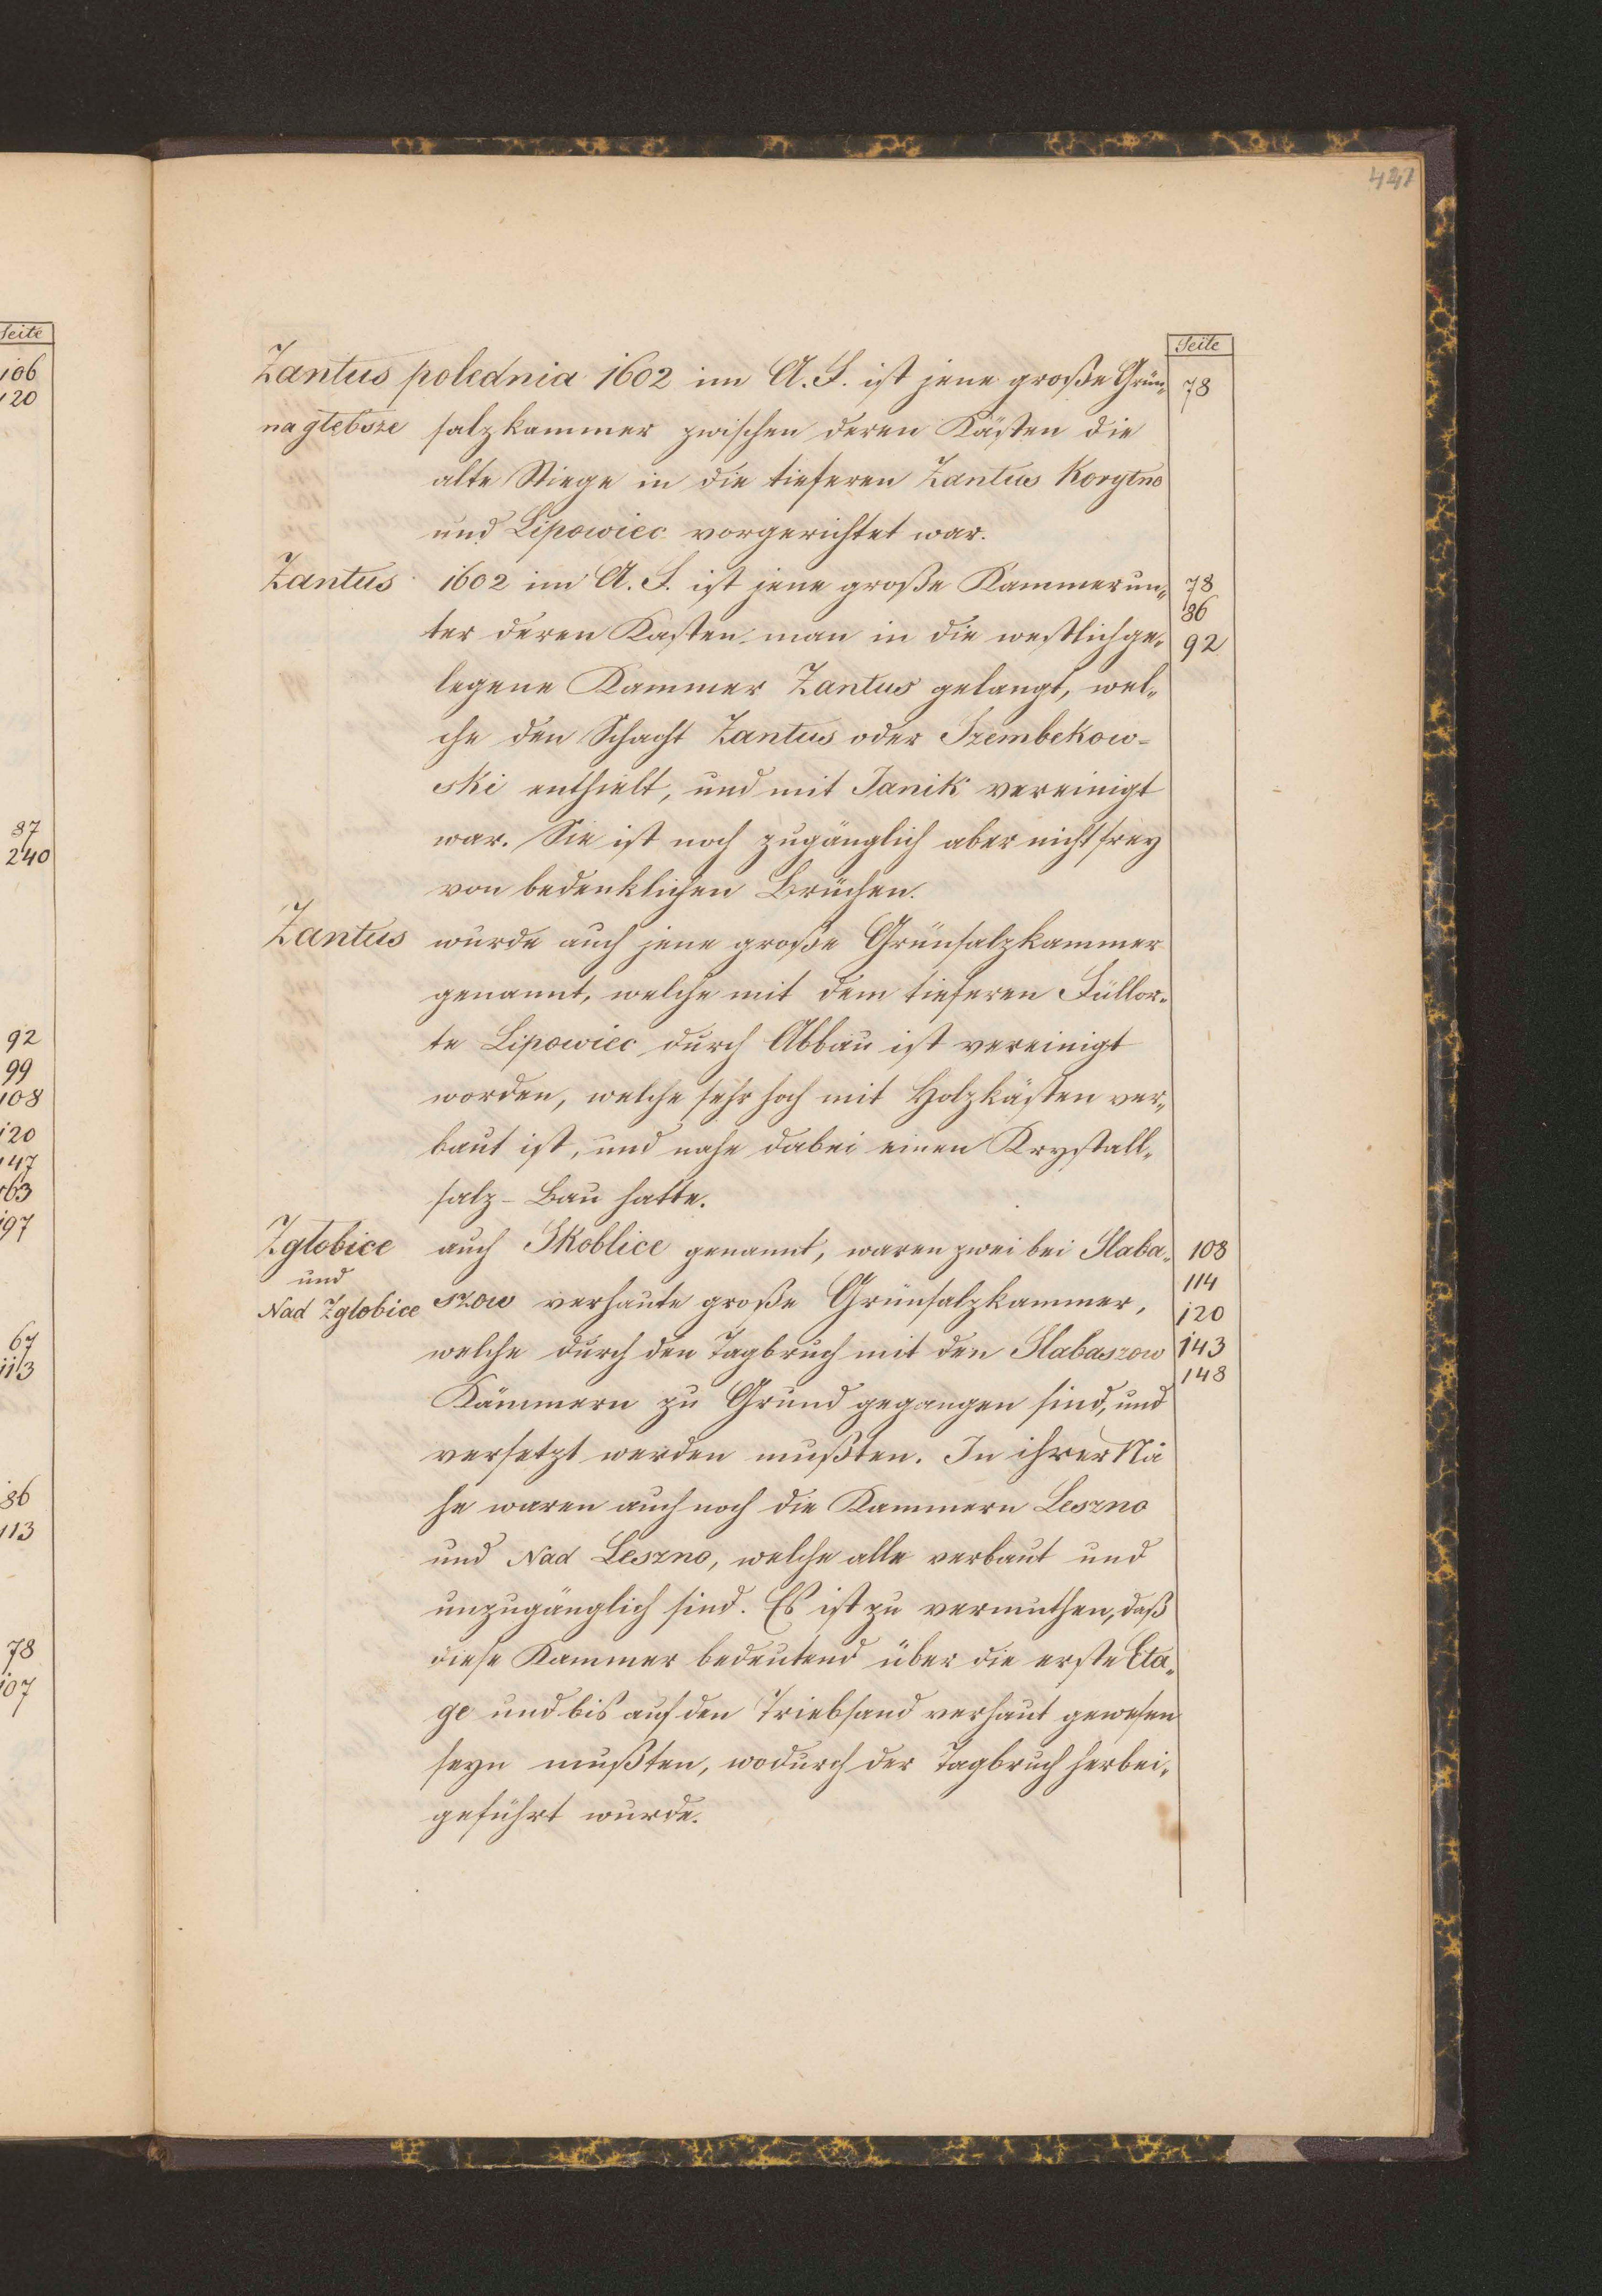 427
Seite
Zantus polednia 1602 im A. F. ist jene große Grün- 78
na glebsze salzkammer zwischen deren Kästen die
alte Stiege in die tieferen Zantus Korytno
und Lipowiec vorgerichtet war.
Zantus 1602 im A. F. ist jene große Kammer un- 78
86
ter deren Kasten man in die westlich ge- 92
legene Kammer Zantus gelangt, wel-
che den Schacht Zantus oder Szembekow-
ski enthielt, und mit Janik vereinigt
war. Sie ist noch zugänglich aber nicht frey
von bedenklichen Brüchen.
Zantus wurde auch jene große Grünsalzkammer
genannt, welche mit dem tieferen Füllor-
te Lipowiec durch Abbau ist vereinigt
worden, welche sehr hoch mit Holzkästen ver-
baut ist, und nahe dabei einen Krystall-
salz-Bau hatte.
Zglobice auch Skoblice genannt, waren zwei bei Slaba- 108
und 114
Nad Zglobice szow verhaute große Grünsalzkammer, 120
welche durch den Tagbruch mit den Slabaszow 143
148
Kämmern zu Grund gegangen sind, und
versetzt werden mußten. In ihrer Nä
he waren auch noch die Kammern Leszno
und Nad Leszno, welche alle verbaut und
unzugänglich sind. Es ist zu vermuthen, daß
diese Kammer bedeutend über die erste Eta-
ge und bis auf den Triebsand verhaut gewesen
seyn mußten, wodurch der Tagbruch herbei-
geführt wurde.
Seite
106
120
87
240
92
99
108
120
147
163
197
67
113
86
113
78
107